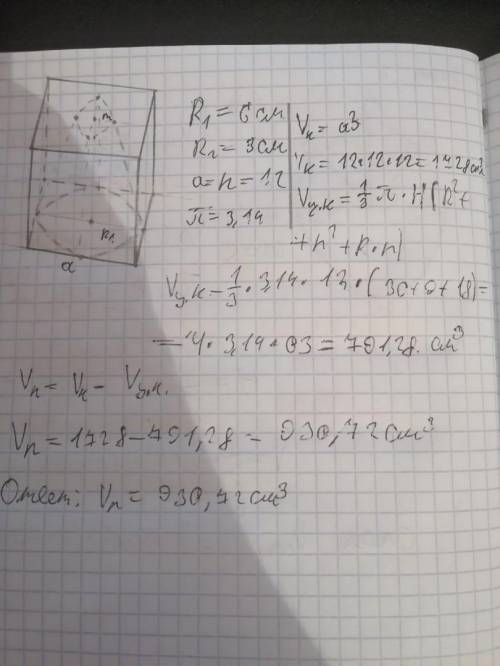 R₁ = 6 см
R₂ = 3 см
a = h = 12
π = 3,14
Vк = a³
Vк = 12·12·12 = 1728 см³
Vу.к = 1/3 π · H (R² +
+ h² + R · h)
R₁
a
Vу.к = 1/3 · 3,14 · 12 · (36 + 9 + 18) =
= 4 · 3,14 · 63 = 791,28 см³
Vп = Vк - Vу.к.
Vп = 1728 - 791,28 = 930,72 см³
Ответ: Vп = 930,72 см³